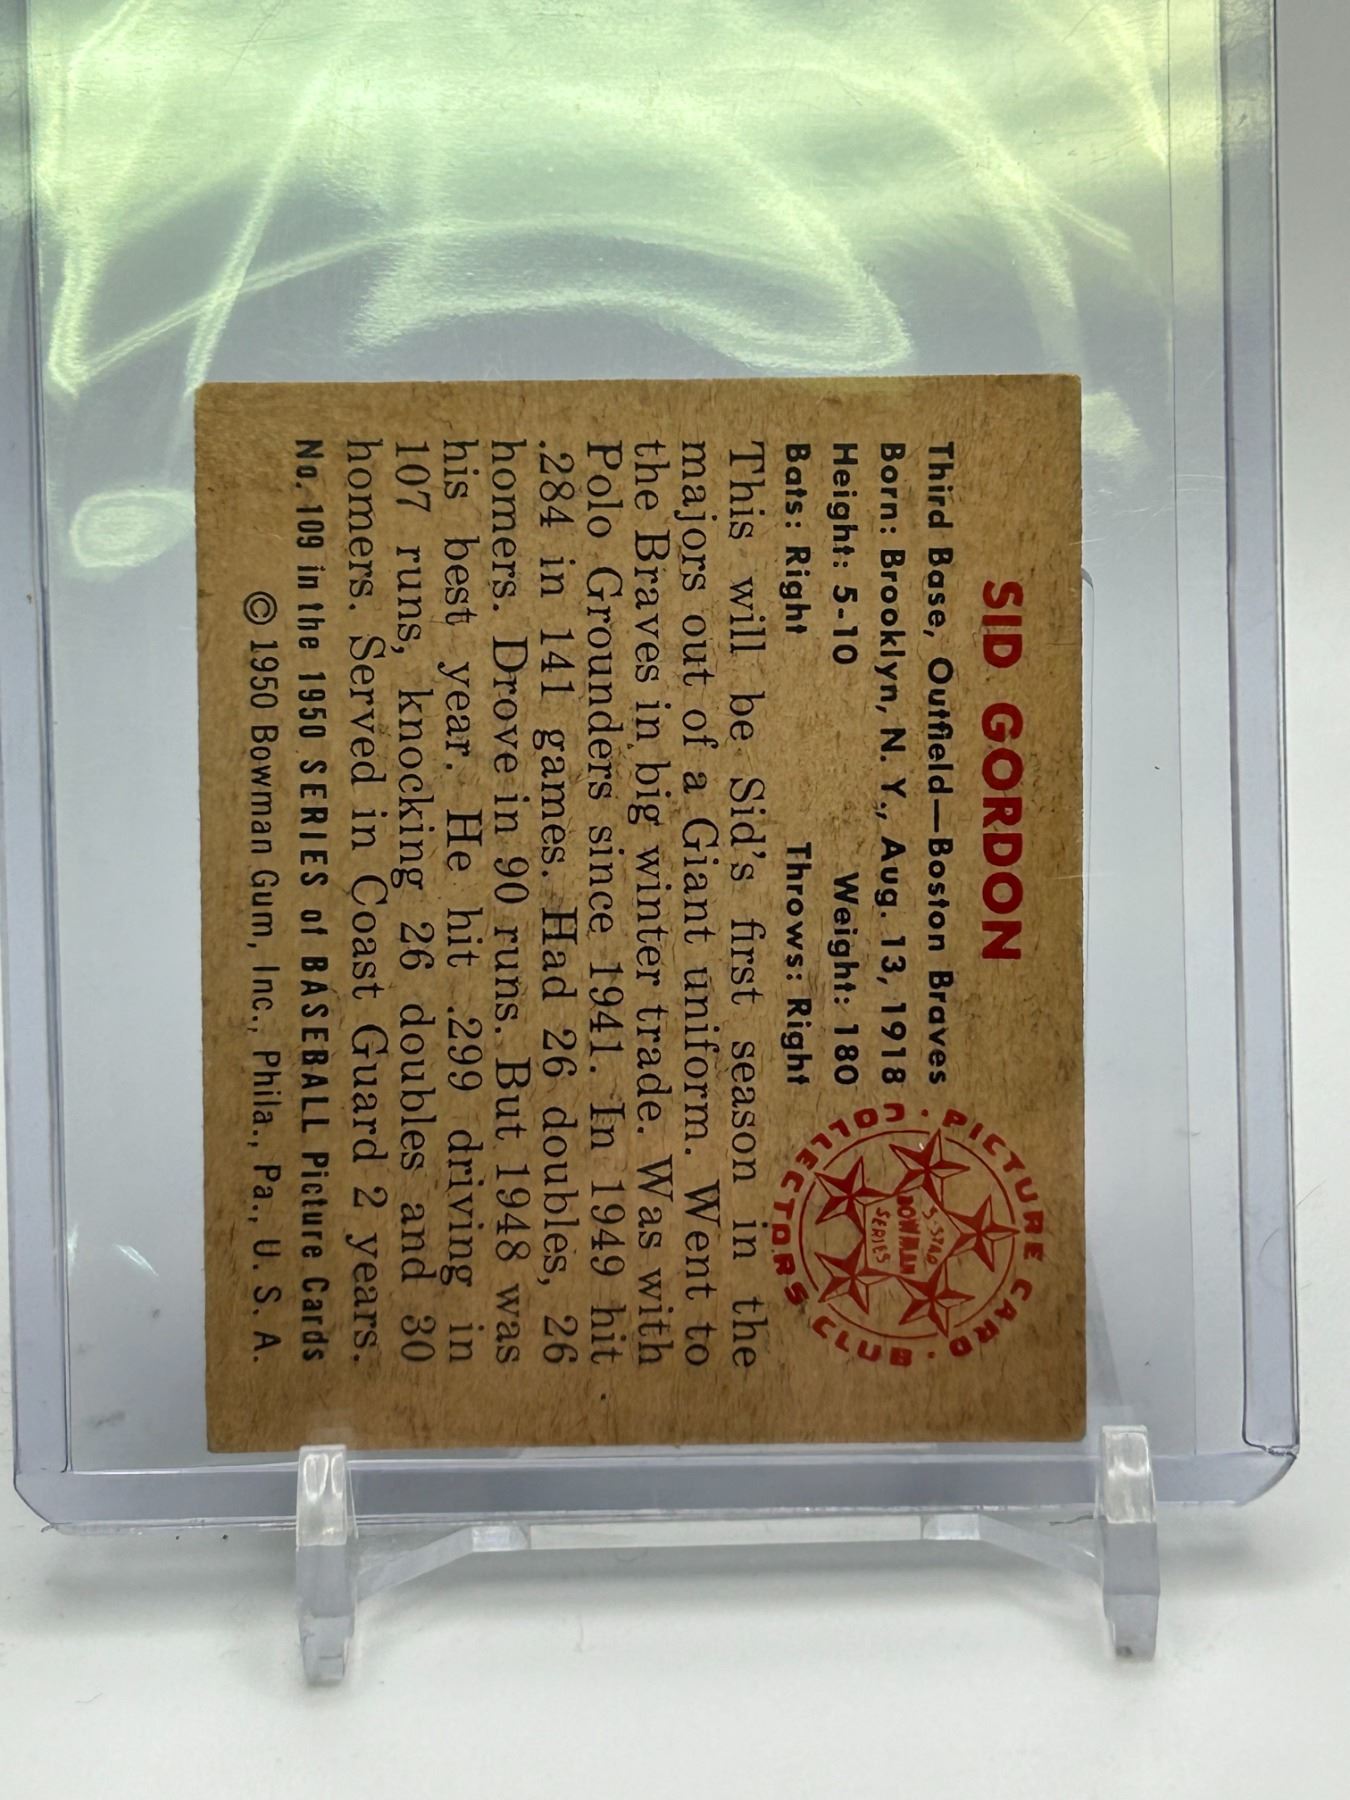 SID GORDON
Third Base, Outfield—Boston Braves
Born: Brooklyn, N. Y., Aug. 13, 1918
Height: 5-10 Weight: 180
Bats: Right Throws: Right
PICTURE CARD · COLLECTORS CLUB ·
5-STAR
BOWMAN
SERIES
This will be Sid's first season in the
majors out of a Giant uniform. Went to
the Braves in big winter trade. Was with
Polo Grounders since 1941. In 1949 hit
.284 in 141 games. Had 26 doubles, 26
homers. Drove in 90 runs. But 1948 was
his best year. He hit .299 driving in
107 runs, knocking 26 doubles and 30
homers. Served in Coast Guard 2 years.
No. 109 in the 1950 SERIES of BASEBALL Picture Cards
© 1950 Bowman Gum, Inc., Phila., Pa., U. S. A.